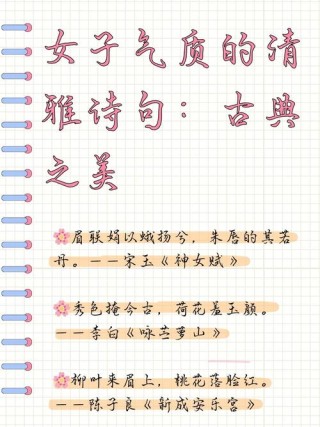 女子气质的清
雅诗句：古典
之美
眉联娟以蛾扬兮，朱唇的其若
丹。——宋玉《神女赋》
秀色掩今古，荷花羞玉颜。
——李白《咏苎萝山》
柳叶来眉上，桃花落脸红。
——陈子良《新成安乐宫》